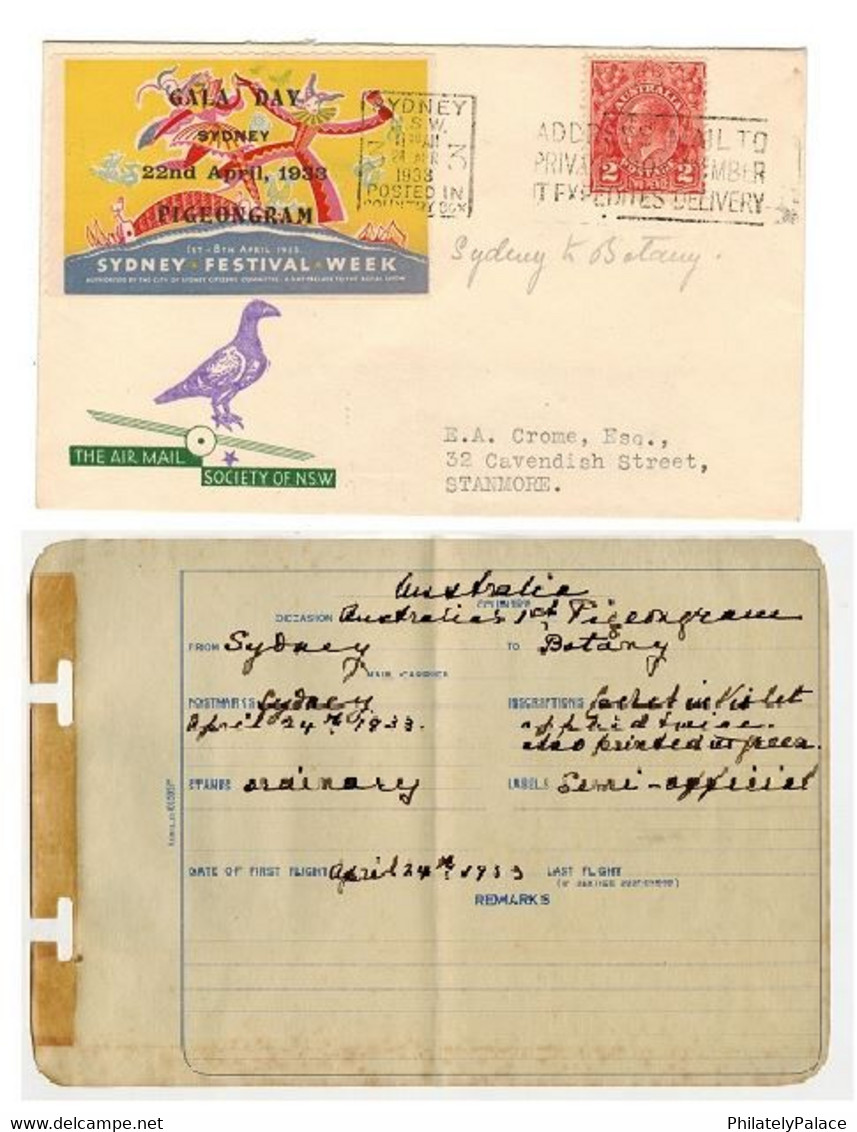 GALA DAY
SYDNEY
22nd April, 1933
PIGEONGRAM
1ST - 8TH APRIL 1933
SYDNEY · FESTIVAL · WEEK
SYDNEY
N.S.W.
24 APR
1933
POSTED IN
COUNTRY BOX
AUSTRALIA
2 POSTAGE 2
ADDRESS MAIL TO
PRIVATE BOX NUMBER
IT EXPEDITES DELIVERY
Sydney to Botany.
THE AIR MAIL
SOCIETY OF N.S.W
E.A. Crome, Esq.,
32 Cavendish Street,
STANMORE.
Australia
COUNTRY
OCCASION Australia's 1st Pigeongram
FROM Sydney TO Botany
MAIL CARRIER
POSTMARKS Sydney
April 24th 1933.
INSCRIPTIONS Cachet in Violet
applied twice.
also printed in green.
STAMPS ordinary LABELS Semi-official
DATE OF FIRST FLIGHT April 24th 1933 LAST FLIGHT
REMARKS
PhilatelyPalace